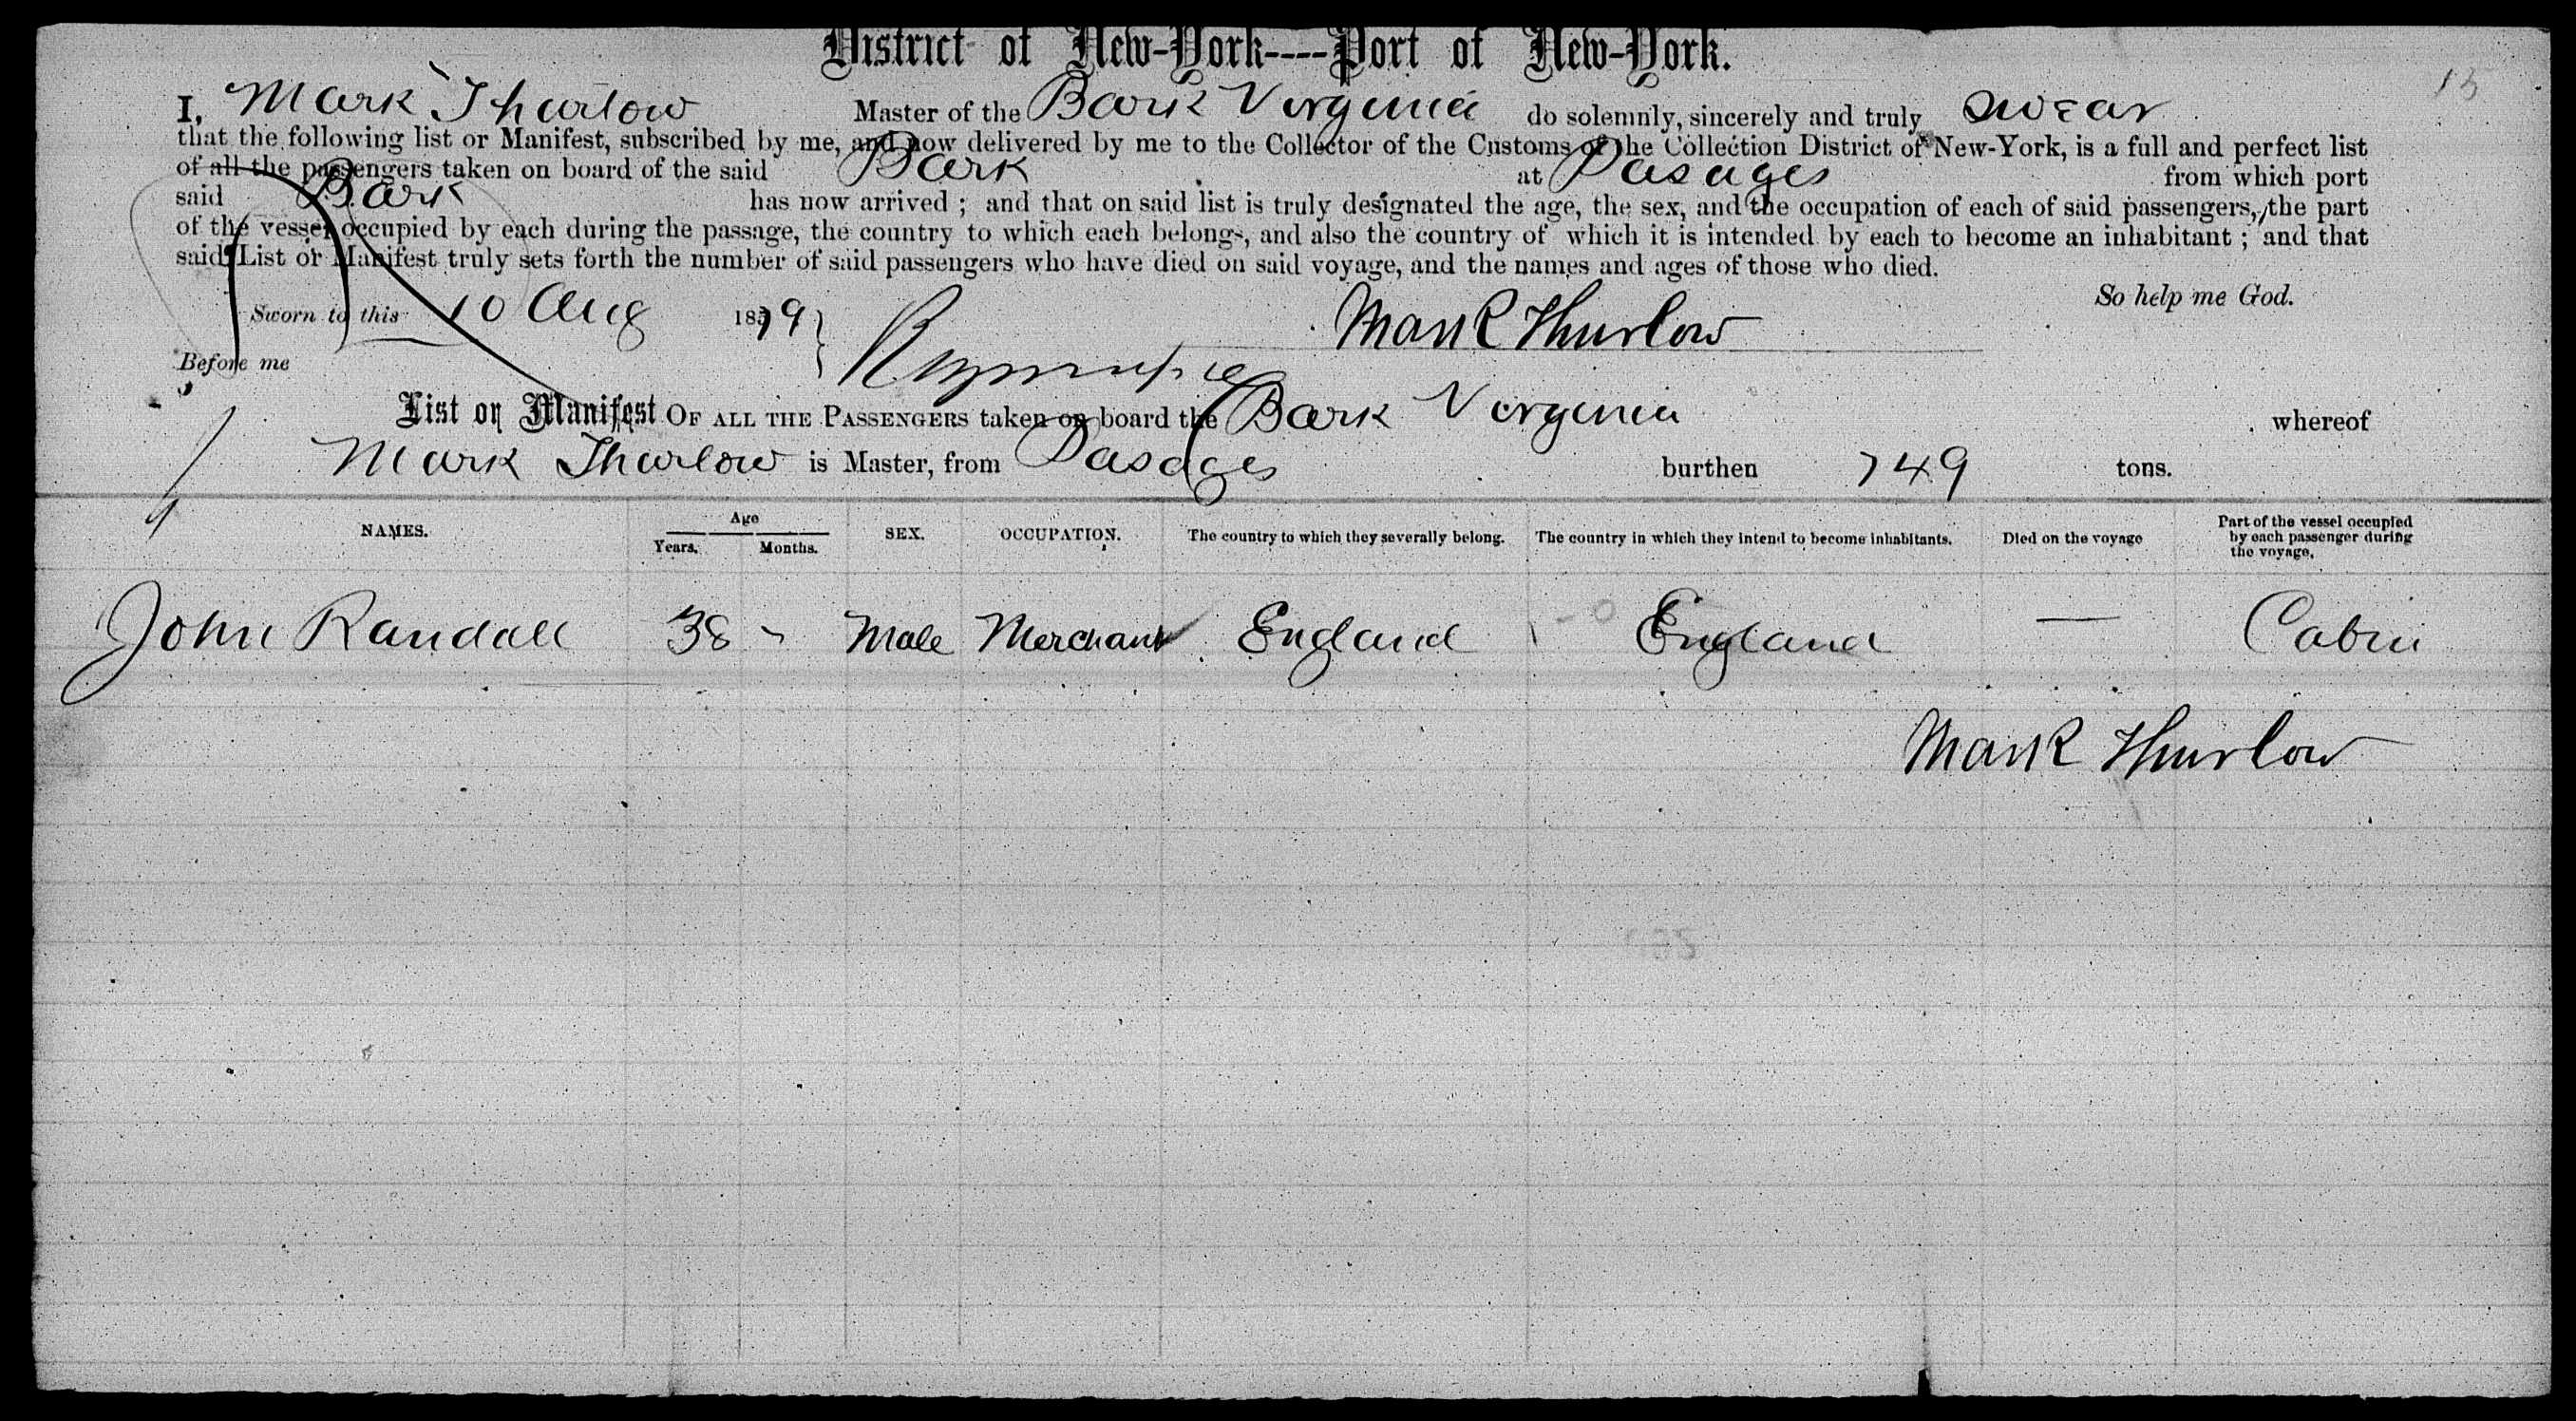 District of New-York----Port of New-York.
15
I, Mark Thurlow Master of the Bark Virginia do solemnly, sincerely and truly swear
that the following list or Manifest, subscribed by me, and now delivered by me to the Collector of the Customs of the Collection District of New-York, is a full and perfect list
of all the passengers taken on board of the said Bark at Pasages from which port
said Bark has now arrived ; and that on said list is truly designated the age, the sex, and the occupation of each of said passengers, the part
of the vessel occupied by each during the passage, the country to which each belongs, and also the country of which it is intended by each to become an inhabitant ; and that
said List or Manifest truly sets forth the number of said passengers who have died on said voyage, and the names and ages of those who died.
So help me God.
Sworn to this 10 Aug 1879 } Mark Thurlow
Before me
List or Manifest OF ALL THE PASSENGERS taken on board the Bark Virginia whereof
Mark Thurlow is Master, from Pasages burthen 749 tons.
NAMES. Age Years. Months. SEX. OCCUPATION. The country to which they severally belong. The country in which they intend to become inhabitants. Died on the voyage Part of the vessel occupied by each passenger during the voyage.
John Randall 38 - Male Merchant England England — Cabin
Mark Thurlow